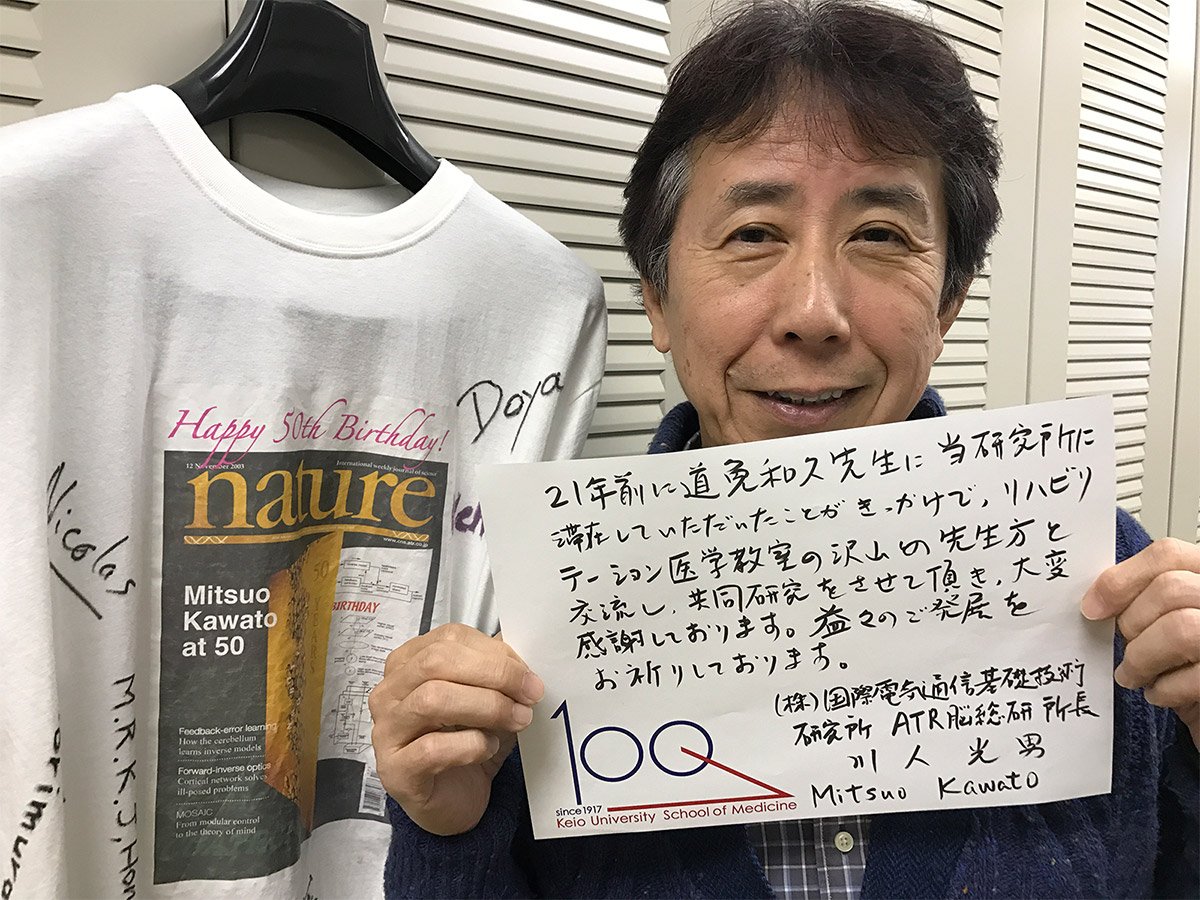 Happy 50th Birthday!
12 November 2003
International weekly journal of science
nature
www.cns.atr.co.jp
Mitsuo
Kawato
at 50
BIRTHDAY
Feedback-error learning
How the cerebellum
learns inverse models
Forward-inverse optics
Cortical network solves
ill-posed problems
MOSAIC
From modular control
to the theory of mind
Doya
Nicolas
M.R.K.J. Hon
orimura
21年前に道免和久先生に当研究所に
滞在していただいたことがきっかけで,リハビリ
テーション医学教室の沢山の先生方と
交流し,共同研究をさせて頂き,大変
感謝しております。益々のご発展を
お祈りしております。
(株)国際電気通信基礎技術
研究所 ATR脳総研 所長
川人光男
Mitsuo Kawato
100
since1917
Keio University School of Medicine